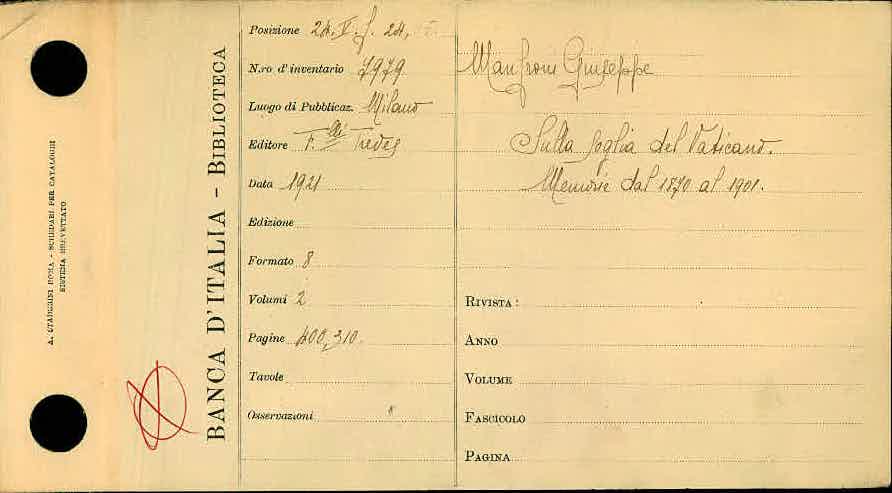 A. STADERINI ROMA - SCHEDARI PER CATALOGHI
SISTEMA BREVETTATO
BANCA D'ITALIA - BIBLIOTECA
Posizione 24. V. f. 24,
N.ro d'inventario 7979
Luogo di Pubblicaz. Milano
Editore F.lli Treves
Data 1921
Edizione
Formato 8
Volumi 2
Pagine 400, 310.
Tavole
Osservazioni
Manfroni Giuseppe
Sulla soglia del Vaticano.
Memorie dal 1870 al 1901.
RIVISTA :
ANNO
VOLUME
FASCICOLO
PAGINA